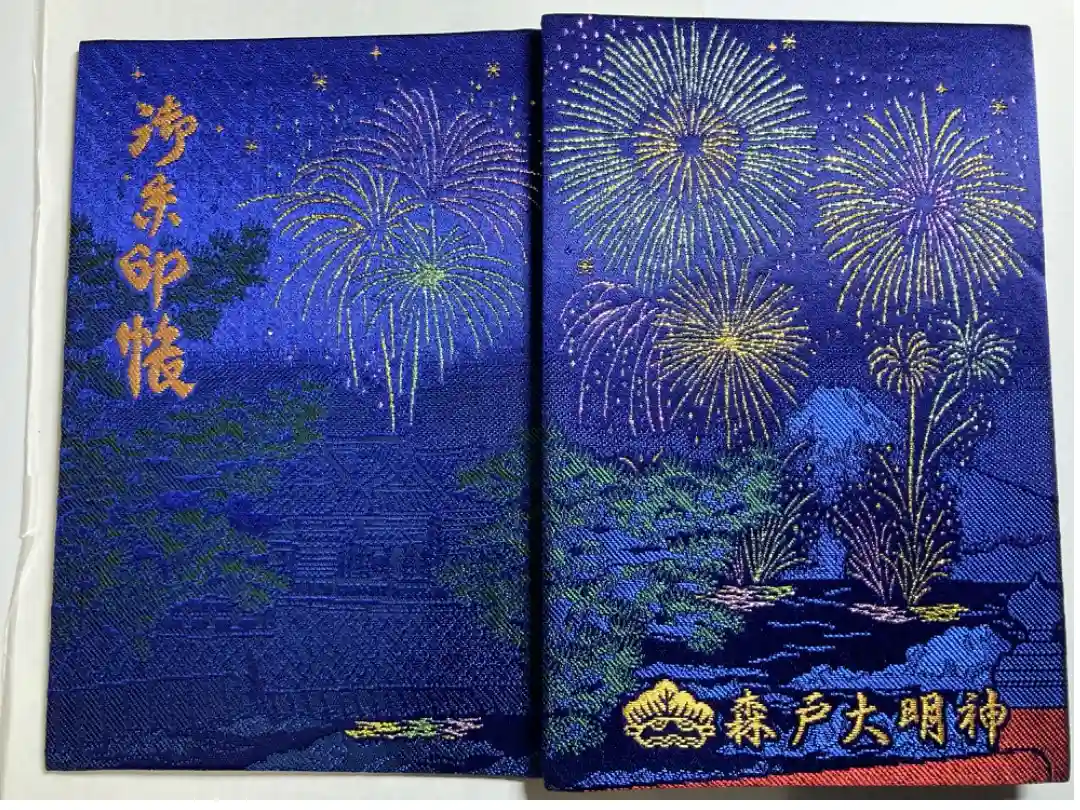 御朱印帳
森戸大明神